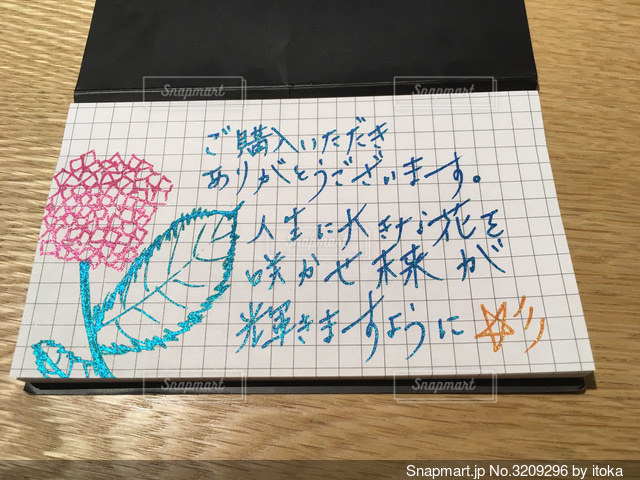 ご購入いただき
ありがとうございます。
人生に大きな花を
咲かせ未来が
輝きますように ☆彡
Snapmart
Snapmart
Snapmart
Snapmart
Snapmart.jp No.3209296 by itoka